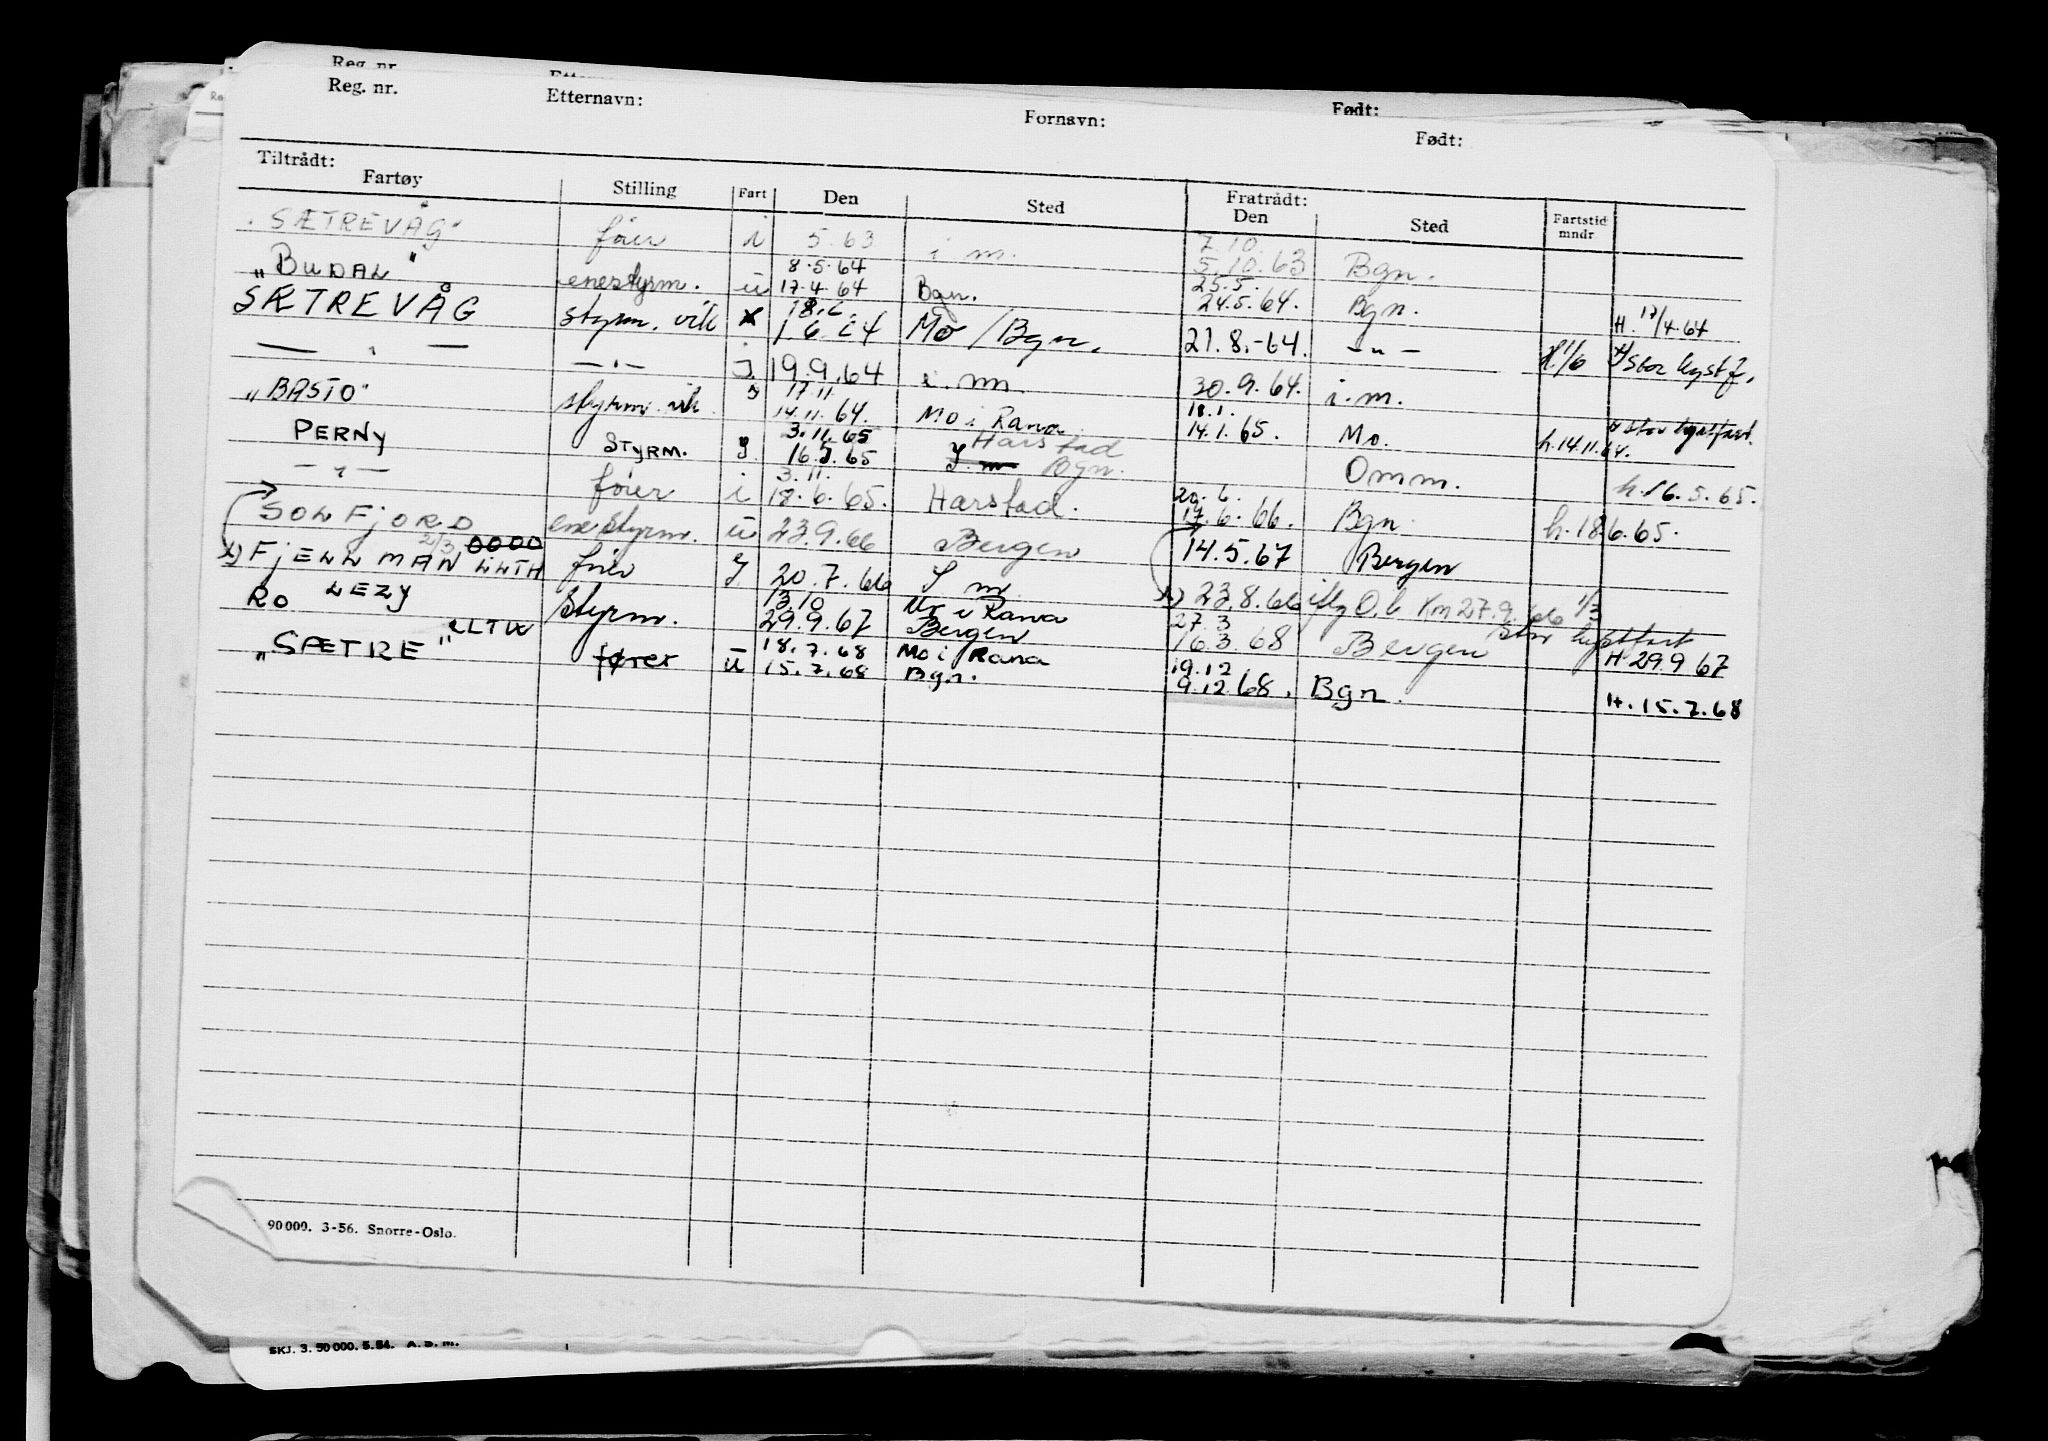 Reg. nr.
Reg. nr. Etternavn: Fornavn: Født:
Født:
Tiltrådt: Fratrådt:
Fartøy Stilling Fart Den Sted Den Sted Fartstid mndr
"SÆTREVÅG" fører i 5.63 i m. 7.10. 5.10.63 Bgn.
"BUDAL" enestyrm. u 8.5.64 17.4.64 Bgn. 25.5. 24.5.64. Bgn. H. 17/4.64
SÆTREVÅG styrm. vik x 18.6. 1.6.64 Mo / Bgn. 21.8.-64. — " — H 1/6 x) Stor kystf.
— " — — " — J. 19.9.64 i. m. 30.9.64. i.m.
"BASTO" styrm. vik. J 17.11 14.11.64. Mo i Rana 18.1. 14.1.65. Mo. h.14.11.64. x Stor kystfart.
PERNY STYRM. J 3.11.65 16.5.65 Harstad Bgn. Omm. h.16.5.65.
— " — fører i 3.11. 18.6.65. Harstad. 20.6. 17.6.66. Bgn. h.18.6.65.
SOLFJORD enestyrm. u 23.9.66 Bergen 14.5.67 Bergen
x) FJELLMAN 2/3 LLTH fører J 20.7.66 J m x) 23.8.66 iflg O.b Km 27.9.66 1/3
RO LEZY Styrm. 13.10 29.9.67 Mo i Rana Bergen 27.3 16.3.68 Bergen Stor kystfart H 29.9 67
"SÆTRE" LLTW fører u 18.7.68 15.7.68 Mo i Rana Bgn. 19.12 9.12.68. Bgn. H. 15.7.68
90000. 3-56. Snorre-Oslo.
SKJ. 3. 50 000. 5.54. A. S. M.